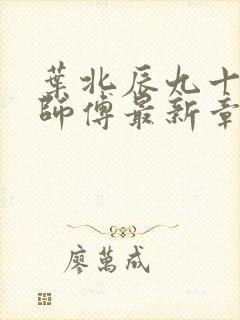 葉北辰九十
師傅最新章
廖萬成